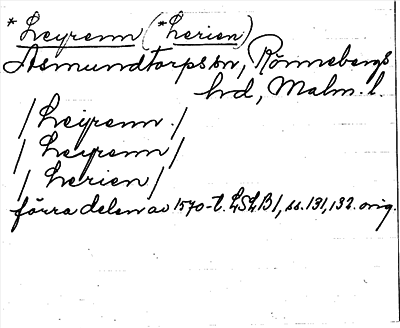 *Leyrenn (*Lerien)
Asmundtorps sn, Rönnebergs
hd, Malm. l.
/Leyrenn./
/Leyrenn/
/Lerien/
förra delen av 1570-t. LSLB 1, ss. 131, 132. orig.